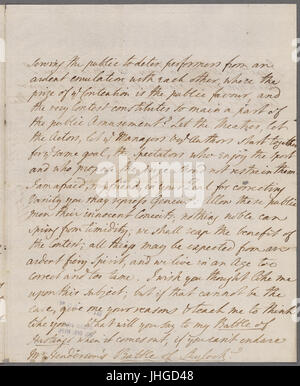 the public to deter performers from an
ardent emulation with each other, where the
prize of Contention is the public favour, and
the very Contest constitutes so main a part of
the public Amusement? Let the
the Actors, let ye Managers & ye Authors start together
for ye same goal, the spectators who enjoy the sport
and who propose the prize, shou'd not restrain them
I am afraid, my friend, in your zeal for correcting
Vanity you may repress Genius. Allow these people
their innocent Conceits; nothing noble can
spring from timidity; we shall reap the benefit of
the Contest; all things may be expected from an
ardent fiery Spirit, and we live in an Age too
correct and too tame. I wish you thought like me
upon this subject; but if that cannot be the
case, give me your reasons & teach me to think
like you. What will you say to my Battle of
Hastings when it comes out, if you cant endure
Mr Henderson's Battle of Shylock?
alamy
JHGD48
www.alamy.com